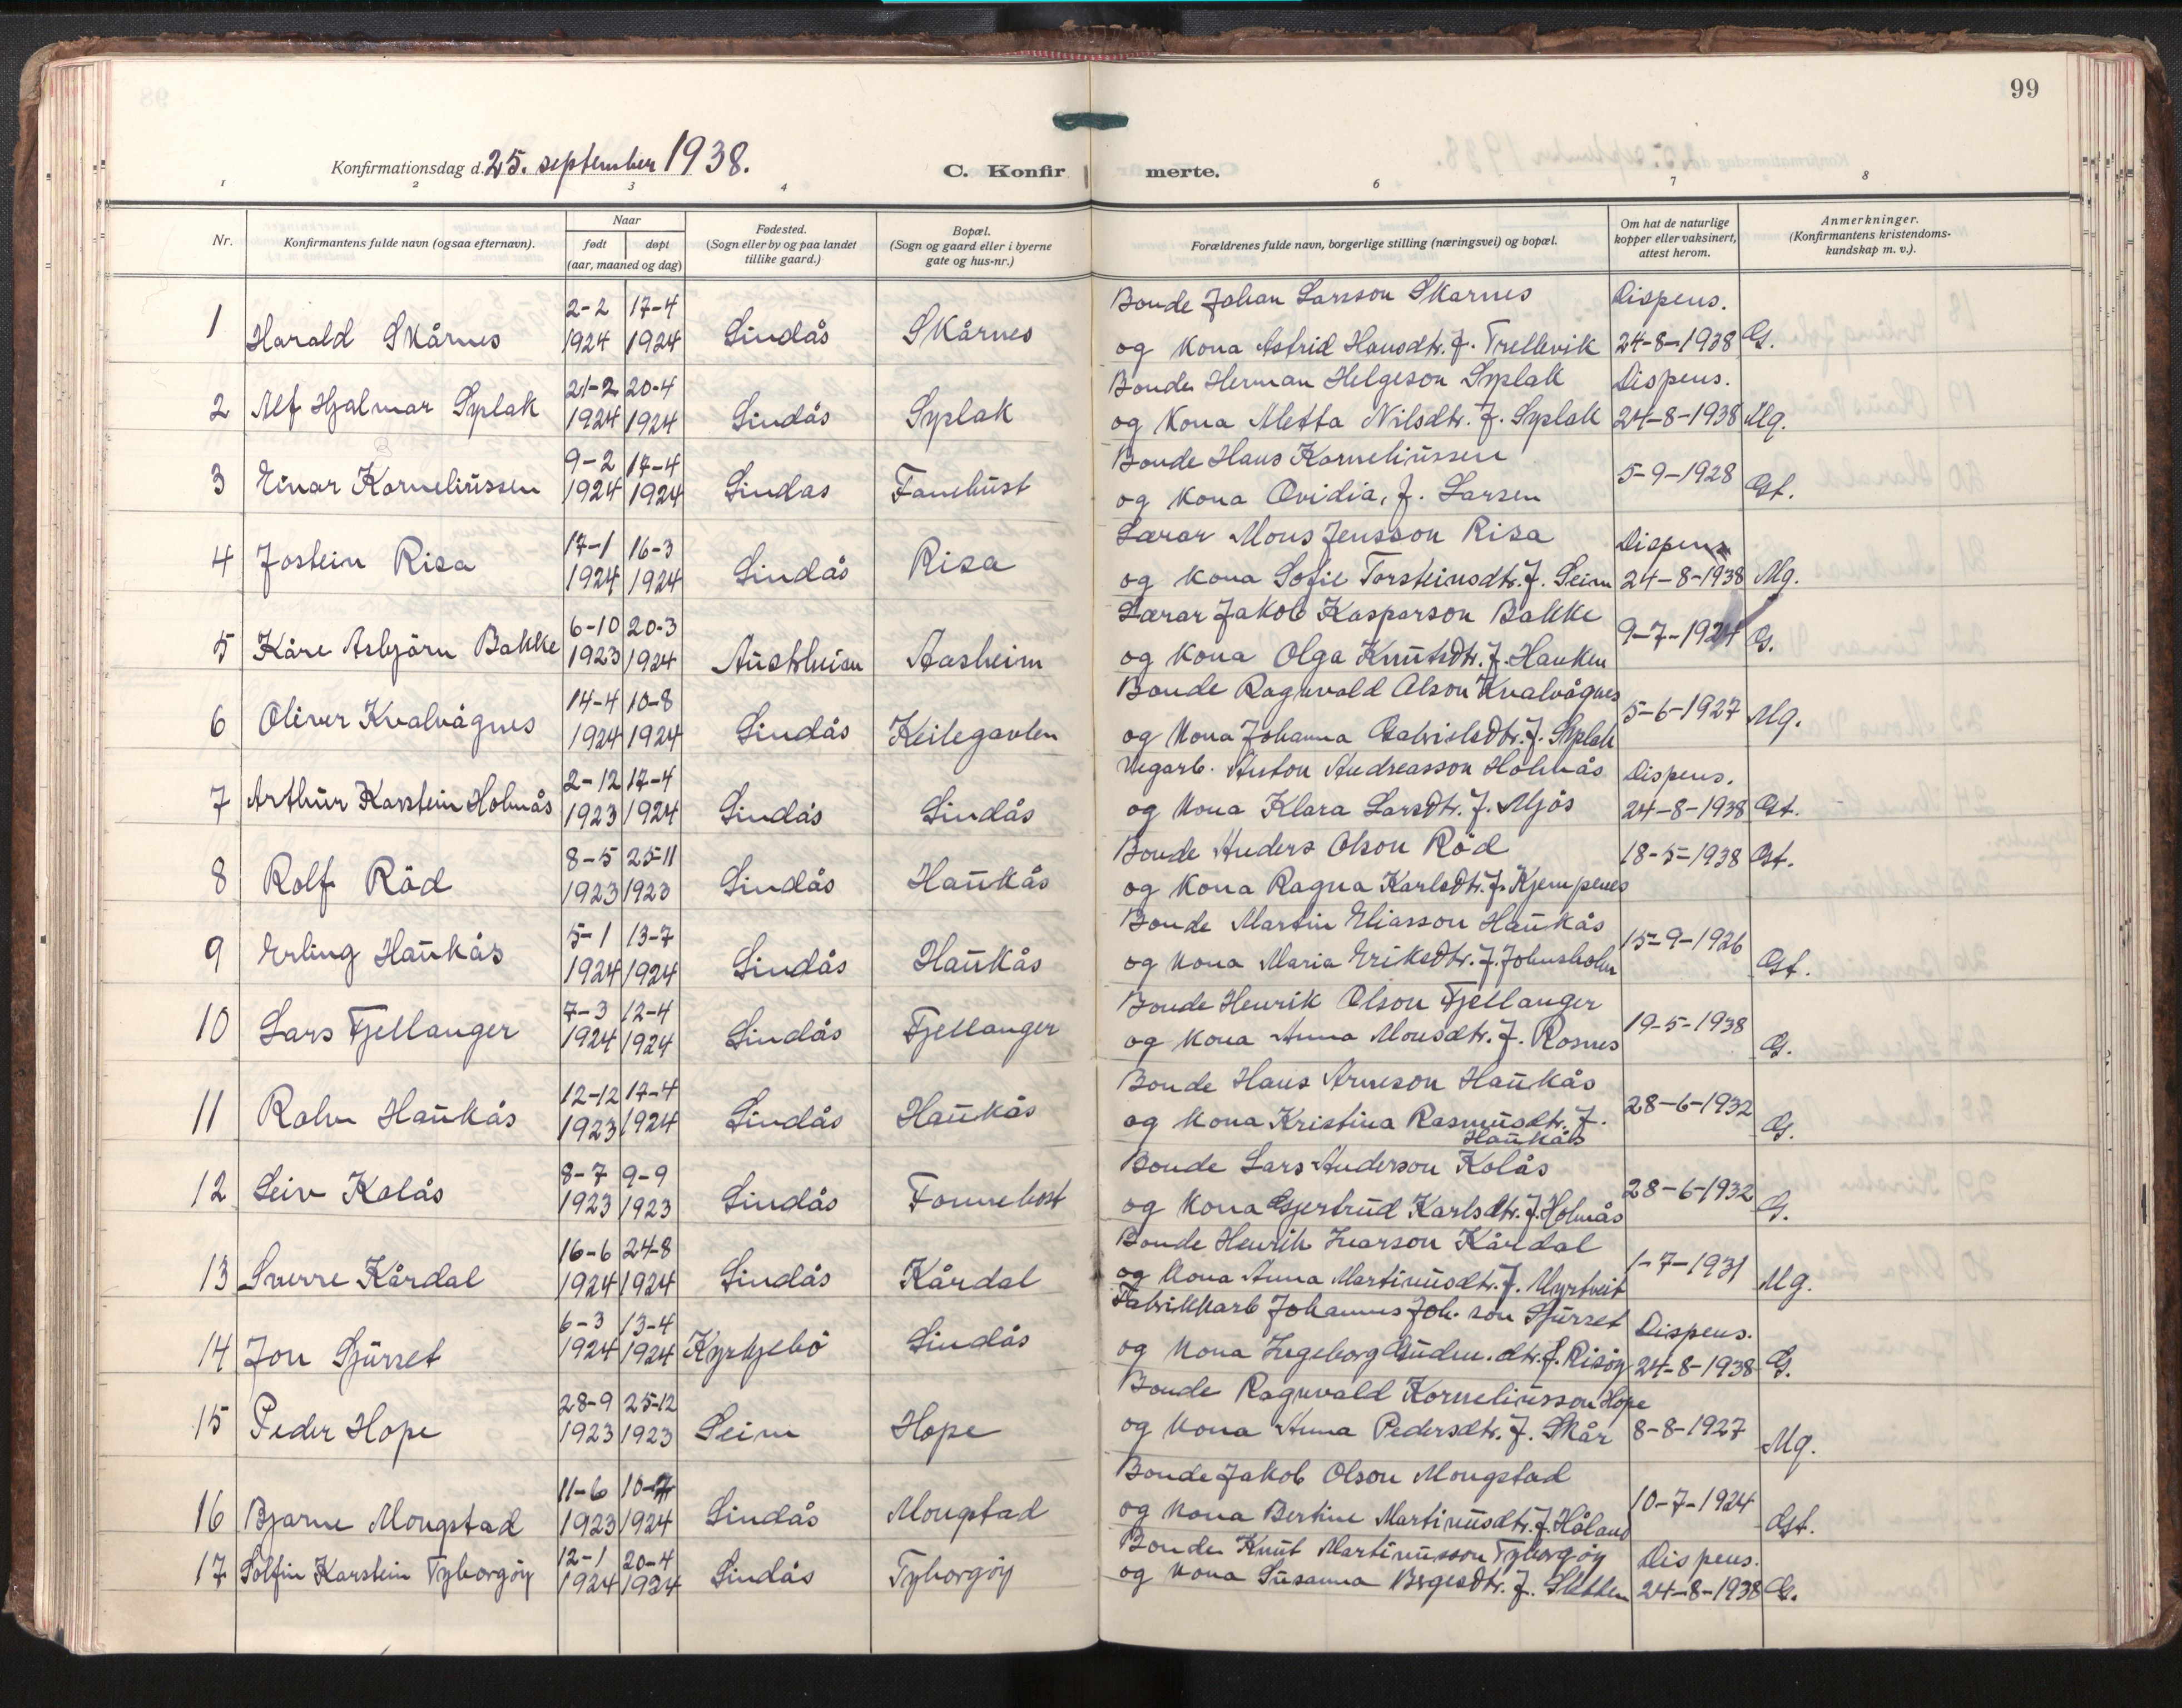 99
Konfirmationsdag d. 25. september 1938.
C. Konfirmerte.
1 2 3 4 6 7 8
Nr.
Konfirmantens fulde navn (ogsaa efternavn).
Naar
født døpt
(aar, maaned og dag)
Fødested.
(Sogn eller by og paa landet
tillike gaard.)
Bopæl.
(Sogn og gaard eller i byerne
gate og hus-nr.)
Forældrenes fulde navn, borgerlige stilling (næringsvei) og bopæl.
Om hat de naturlige
kopper eller vaksinert,
attest herom.
Anmerkninger.
(Konfirmantens kristendoms-
kundskap m. v.).
2-2 17-4 Bonde Johan Larsson Skarnes Dispens.
1 Harald Skårnes 1924 1924 Lindås Skårnes og kona Astrid Hansdtr. f. Trellevik 24-8-1938 G.
21-2 20-4 Bonde Herman Helgeson Syslak Dispens.
2 Alf Hjalmar Syslak 1924 1924 Lindås Syslak og kona Metta Nilsdtr. f. Syslak 24-8-1938 Mg.
9-2 17-4 Bonde Hans Korneliussen 5-9-1928
3 Einar Korneliussen 1924 1924 Lindas Fanehust og kona Ovidia, f. Larsen Gt.
17-1 16-3 Lærar Mons Jensson Risa Dispens
4 Jostein Risa 1924 1924 Lindås Risa og kona Sofie Torsteinsdtr. f. Seim 24-8-1938 Mg.
6-10 20-3 Lærar Jakob Kasparson Bakke 9-7-1924
5 Kåre Asbjörn Bakke 1923 1924 Austrheim Aasheim og kona Olga Knutsdtr. f. Hauken G.
14-4 10-8 Bonde Ragnvald Olson Kvalvågnes 5-6-1927
6 Oliver Kvalvågnes 1924 1924 Lindås Keilegavlen og kona Johanna Gabrielsdtr. f. Syslak Mg.
2-12 17-4 Vegarb. Anton Andreasson Holmås Dispens.
7 Arthur Karstein Holmås 1923 1924 Lindås Lindås og kona Klara Larsdtr. f. Mjös 24-8-1938 Gt.
8-5 25-11 Bonde Anders Olson Röd 18-5-1938 Gt.
8 Rolf Röd 1923 1923 Lindås Haukås og kona Ragna Karlsdtr. f. Kjempenes
5-1 13-7 Bonde Martin Eliasson Haukås 15-9-1926
9 Erling Haukås 1924 1924 Lindås Haukås og kona Maria Eriksdtr. f. Johnsholm Gt.
7-3 12-4 Bonde Henrik Olson Fjellanger 19-5-1938
10 Lars Fjellanger 1924 1924 Lindås Fjellanger og kona Anna Monsdtr. f. Rosnes G.
12-12 17-4 Bonde Hans Arneson Haukås 28-6-1932
11 Ralv Haukås 1923 1924 Lindås Haukås og kona Kristina Rasmusdtr. f. G.
Haukås
8-7 9-9 Bonde Lars Anderson Kolås 28-6-1932
12 Leiv Kolås 1923 1923 Lindås Fonnebost og kona Gjertrud Karlsdtr. f. Holmås G.
16-6 24-8 Bonde Henrik Ivarson Kårdal 1-7-1931
13 Sverre Kårdal 1924 1924 Lindås Kårdal og kona Anna Martinusdtr. f. Myrtveit Mg.
6-3 13-4 Fabrikkarb Johannes Joh. son Sjurset Dispens.
14 Jon Sjurset 1924 1924 Kyrkjebö Lindås og kona Ingeborg Gudm. dtr. f. Risöy 24-8-1938 G.
28-9 25-12 Bonde Ragnvald Korneliusson Hope
15 Peder Hope 1923 1923 Seim Hope og kona Anna Pedersdtr. f. Skår 8-8-1927 Mg.
11-6 10-7 Bonde Jakob Olson Mongstad 10-7-1924
16 Bjarne Mongstad 1923 1924 Lindås Mongstad og kona Bertine Martinusdtr. f. Håland Gt.
12-1 20-4 Bonde Knut Martinusson Tyborgöy Dispens.
17 Solfin Karstein Tyborgöy 1924 1924 Lindås Tyborgöy og kona Susanna Börgesdtr. f. Sletten 24-8-1938 G.